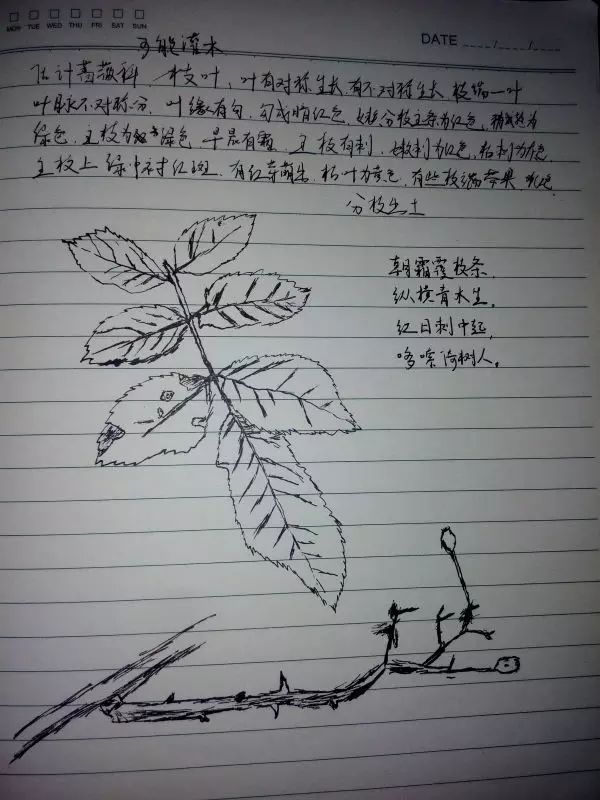 MON TUE WED THU FRI SAT SUN
DATE
可能灌木
估计蔷薇科 枝叶,叶有对称生长,有不对称生长,枝端一叶
叶脉不对称分,叶缘有勾,勾或暗红色,嫩分枝主茎为红色,稍 为
绿色,主枝为 绿色,早晨有霜,主枝有刺,嫩刺为红色,枯刺为 色
主枝上绿中衬红斑,有红芽萌出,枯叶为 色,有些枝端带果,
分枝出土
朝霜覆枝条,
纵横青木生,
红日刺中起,
哆嗦 树人。